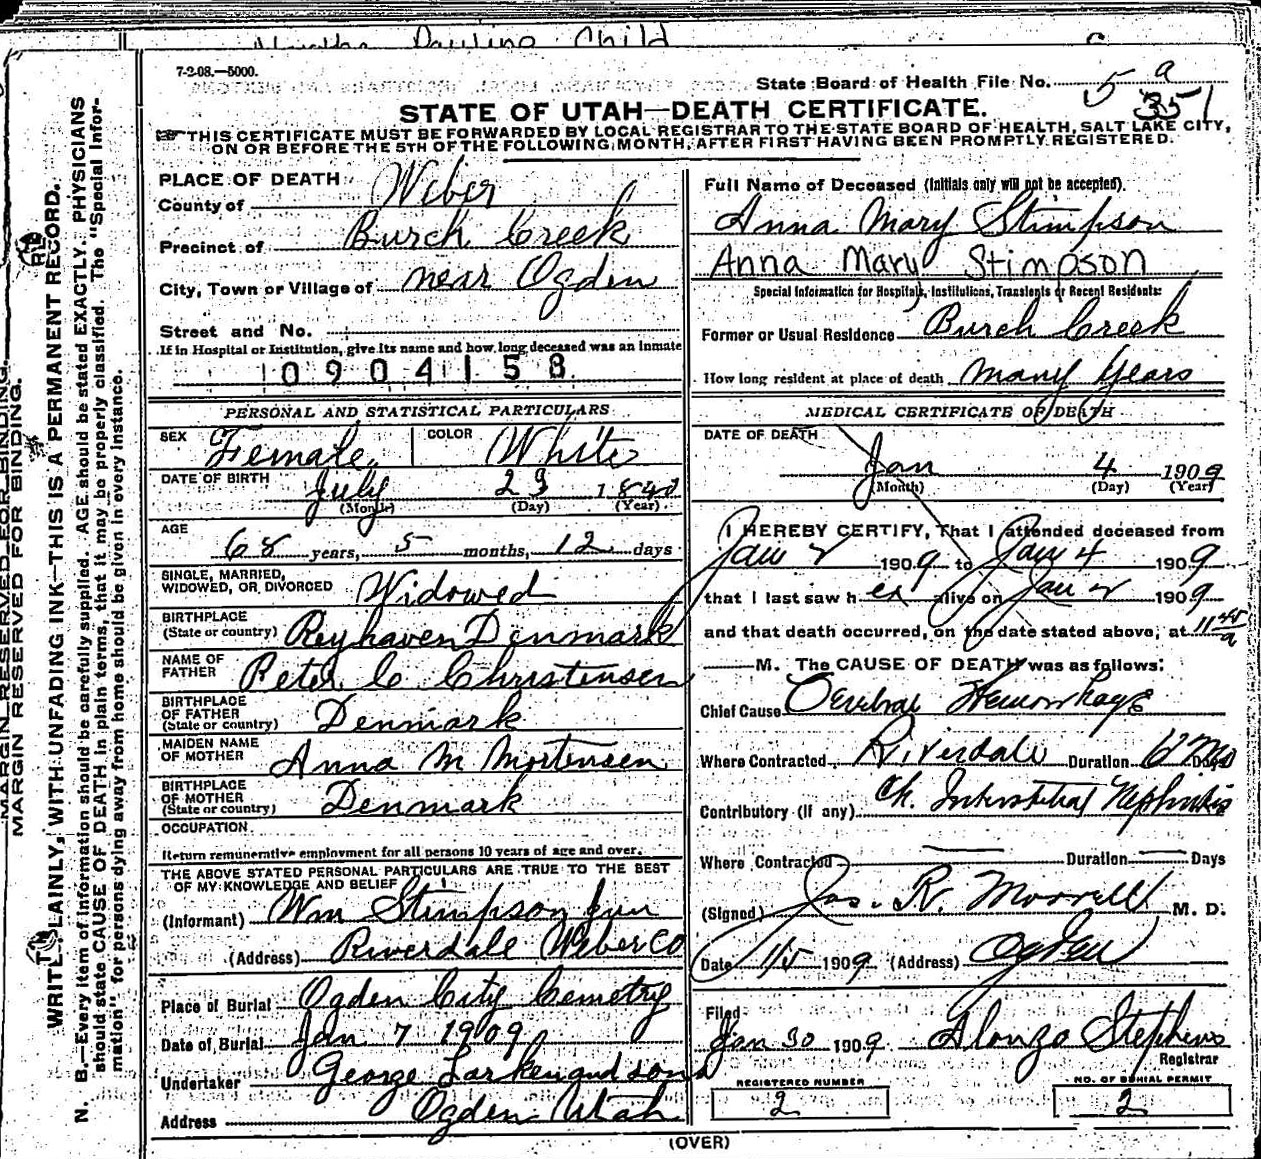 Pauline Child
7-2-08.—5000.
State Board of Health File No. 5 a
351
STATE OF UTAH—DEATH CERTIFICATE.
THIS CERTIFICATE MUST BE FORWARDED BY LOCAL REGISTRAR TO THE STATE BOARD OF HEALTH, SALT LAKE CITY,
ON OR BEFORE THE 5TH OF THE FOLLOWING MONTH, AFTER FIRST HAVING BEEN PROMPTLY REGISTERED.
MARGIN RESERVED FOR BINDING.
MARGIN RESERVED FOR BINDING.
WRITE PLAINLY, WITH UNFADING INK—THIS IS A PERMANENT RECORD.
N. B.—Every item of information should be carefully supplied. AGE should be stated EXACTLY. PHYSICIANS
should state CAUSE OF DEATH in plain terms, that it may be properly classified. The "Special Infor-
mation" for persons dying away from home should be given in every instance.
PLACE OF DEATH
County of Weber
Precinct of Burch Creek
City, Town or Village of near Ogden
Street and No.
If in Hospital or Institution, give its name and how long deceased was an inmate
0904158
PERSONAL AND STATISTICAL PARTICULARS
SEX Female COLOR White
DATE OF BIRTH July 23 1840
(Month) (Day) (Year)
AGE 68 years, 5 months, 12 days
SINGLE, MARRIED,
WIDOWED, OR DIVORCED Widowed
BIRTHPLACE
(State or country) Reyhaven Denmark
NAME OF
FATHER Peter C Christensen
BIRTHPLACE
OF FATHER
(State or country) Denmark
MAIDEN NAME
OF MOTHER Anna M Mortensen
BIRTHPLACE
OF MOTHER
(State or country) Denmark
OCCUPATION
Return remunerative employment for all persons 10 years of age and over.
THE ABOVE STATED PERSONAL PARTICULARS ARE TRUE TO THE BEST
OF MY KNOWLEDGE AND BELIEF
(Informant) Wm Stimpson Jun
(Address) Riverdale Weber CO
Place of Burial Ogden City Cemetry
Date of Burial Jan 7 1909
Undertaker George Larken and sons
Address Ogden Utah
Full Name of Deceased (Initials only will not be accepted).
Anna Mary Stimpson
Anna Mary Stimpson
Special Information for Hospitals, Institutions, Transients or Recent Residents:
Former or Usual Residence Burch Creek
How long resident at place of death many years
MEDICAL CERTIFICATE OF DEATH
DATE OF DEATH
Jan 4 1909
(Month) (Day) (Year)
I HEREBY CERTIFY, That I attended deceased from
Jan 2 1909 to Jan 4 1909
that I last saw h er alive on Jan 2 1909
and that death occurred, on the date stated above, at 11 45 a
M. The CAUSE OF DEATH was as follows:
Chief Cause Cerebral Hemorrhage
Where Contracted Riverdale Duration 6 Mo Days
Contributory (if any) Ch. Interstitial Nephritis
Where Contracted Duration Days
(Signed) Jas. R. Morrell M. D.
Date 1/5 1909 (Address) Ogden
Filed
Jan 30 1909 Alonzo Stephens
Registrar
REGISTERED NUMBER NO. OF BURIAL PERMIT
2 2
(OVER)